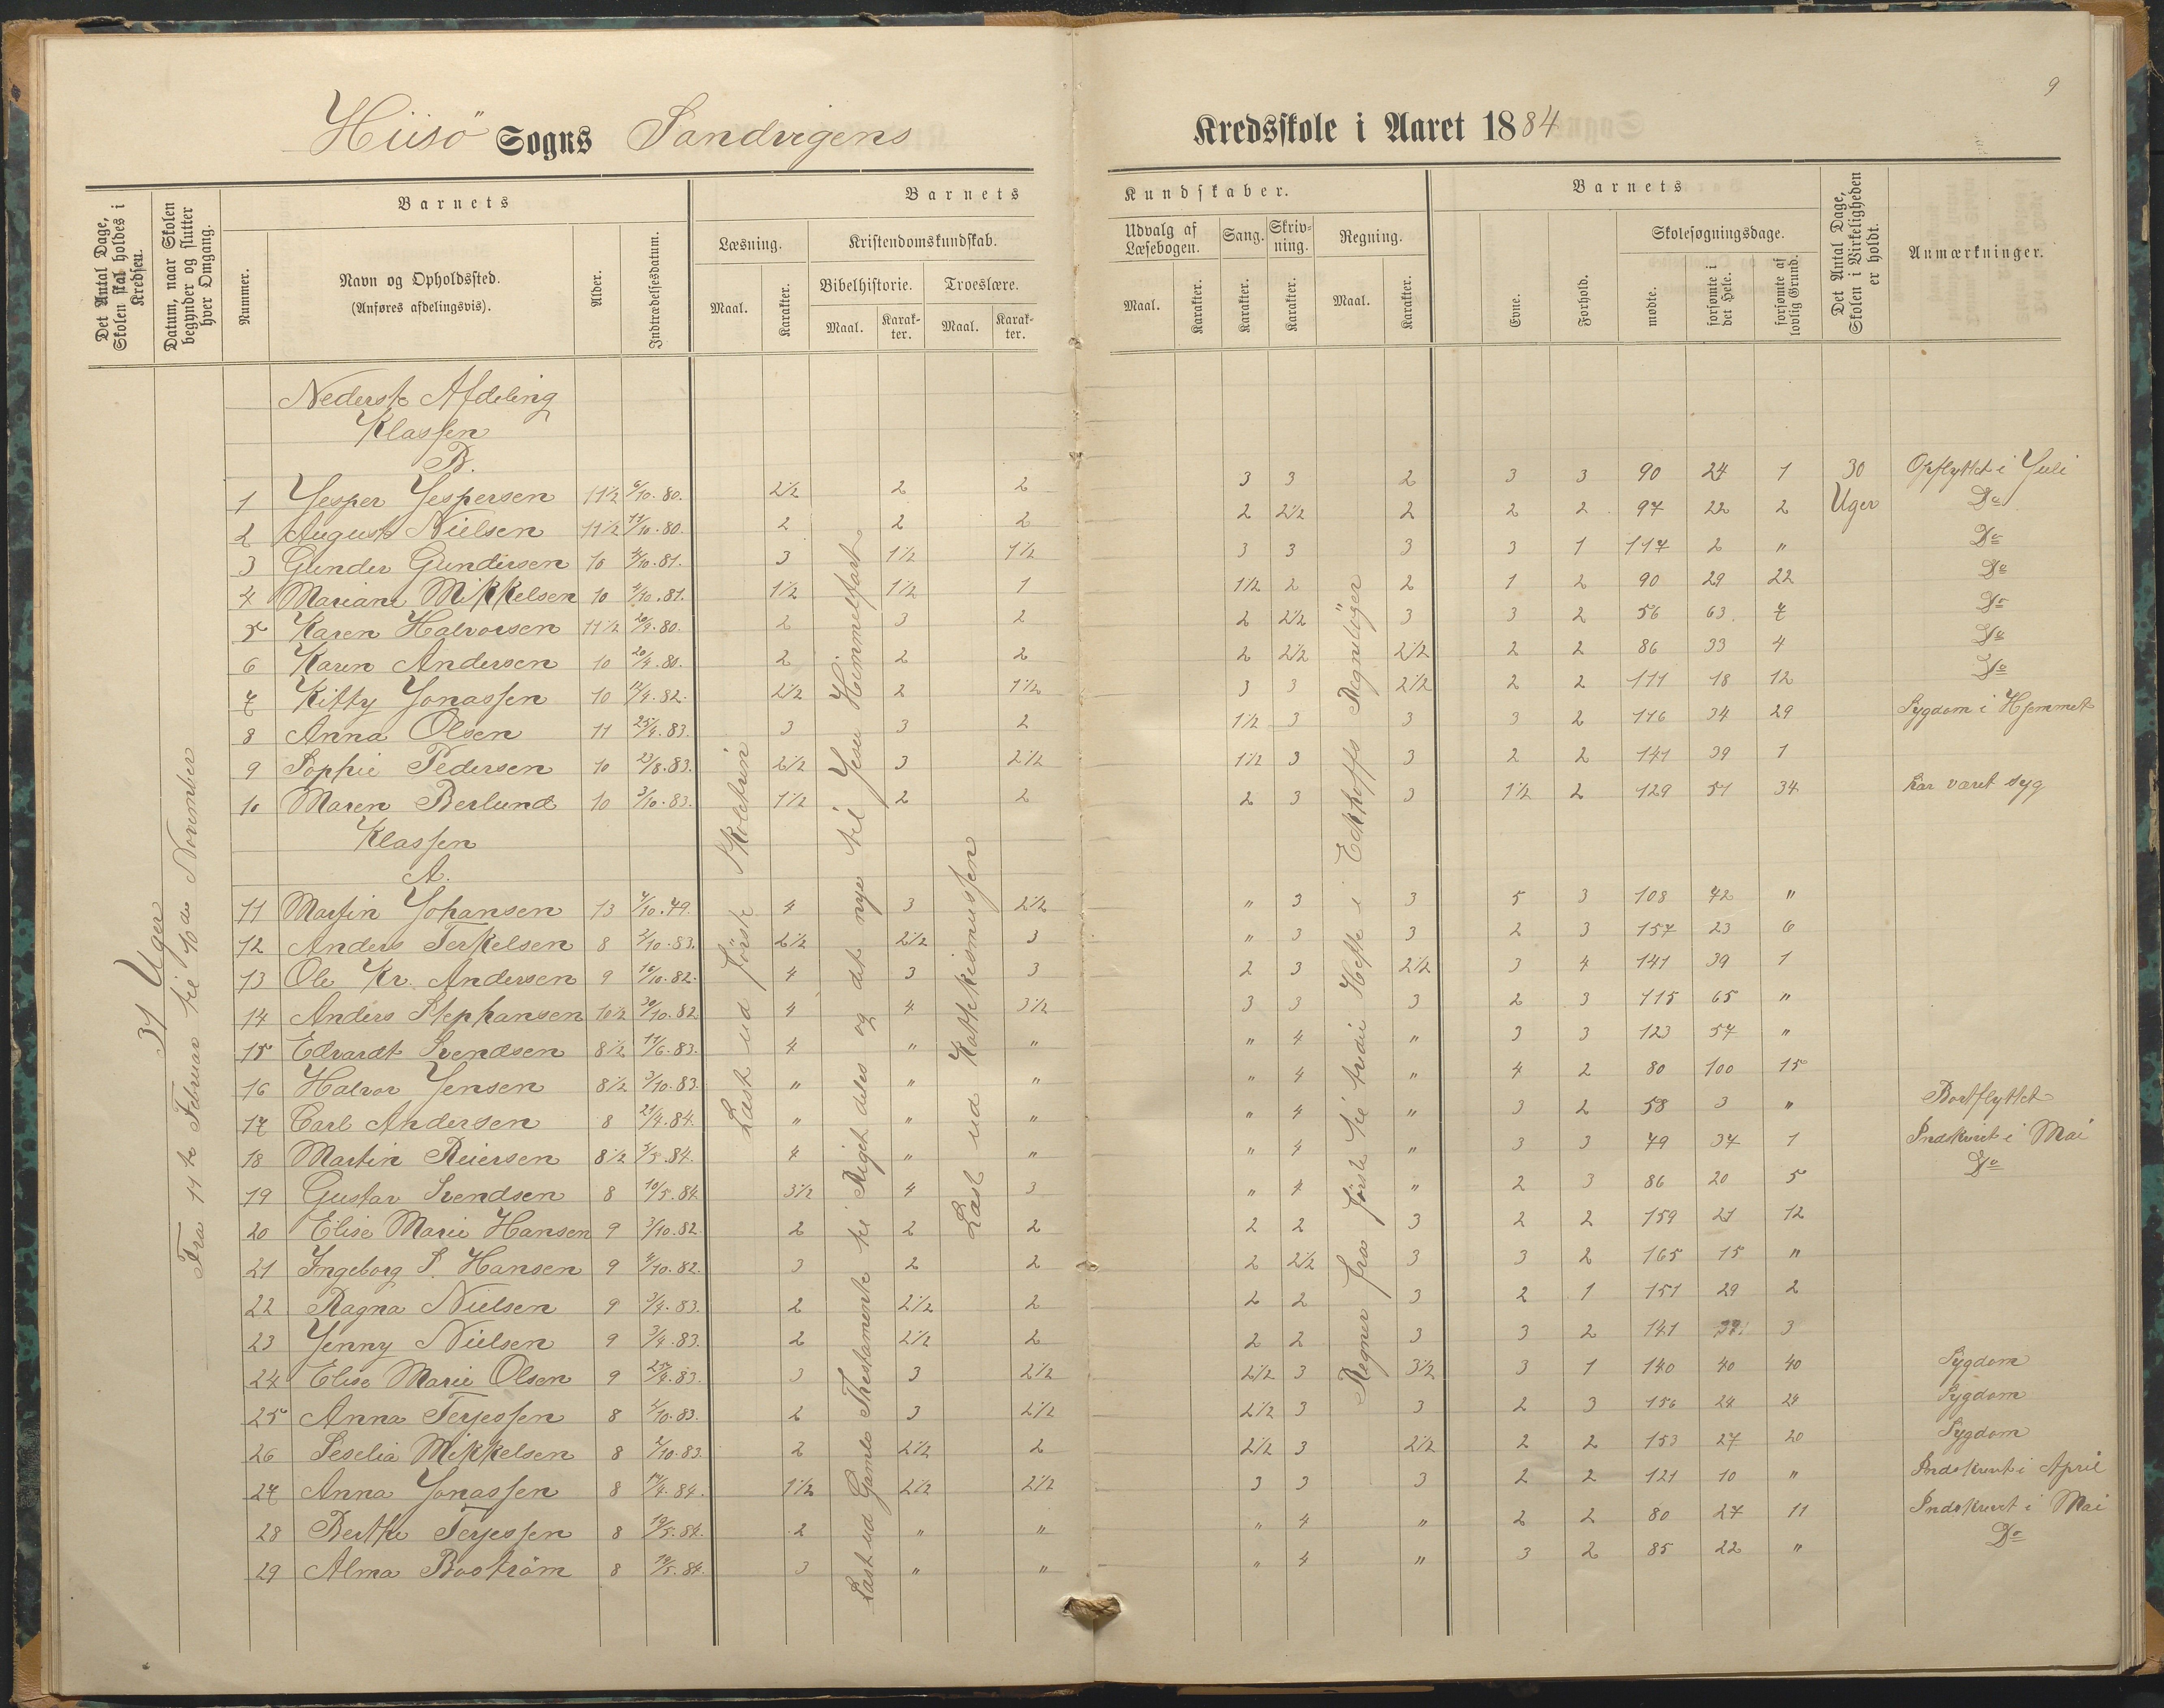 9
Hiisö Sogns Sandvigens Kredsskole i Aaret 1884
Det Antal Dage, Skolen skal holdes i Kredsen.
Datum, naar Skolen begynder og slutter hver Omgang.
Barnets
Nummer.
Navn og Opholdssted.
(Anføres afdelingsvis).
Alder.
Indtrædelsesdatum.
Barnets Kundskaber.
Læsning.
Maal. Karakter.
Kristendomskundskab.
Bibelhistorie. Troeslære.
Maal. Karakter. Maal. Karakter.
Udvalg af Læsebogen.
Maal. Karakter.
Sang.
Karakter.
Skrivning.
Karakter.
Regning.
Maal. Karakter.
Barnets
Evne. Forhold.
Skolesøgningsdage.
mødte. forsømte i det Hele. forsømte af lovlig Grund.
Det Antal Dage, Skolen i Virkeligheden er holdt.
Anmærkninger.
31 Uger
Fra 11te Februar til 10de November
Læst ud første Skoletrin
Læst ud Gamle Thestamente til Riget deles og det nye til Jesu Himmelfart
Læst ud Katekismussen
Regner fra første til tredie Hefte i Eckhoffs Regneløger
Nederste Afdeling
Klassen
B.
1 Jesper Jespersen 11½ 6/10.80. 2½ 2 2 3 3 2 3 3 90 24 1 30 Opflyttet i Juli
2 August Nielsen 11½ 11/10.80. 2 2 2 2 2½ 2 2 2 97 22 2 Uger Do
3 Gunder Gundersen 10 4/10.81. 3 1½ 1½ 3 3 3 3 1 117 2 " Do
4 Mariane Mikkelsen 10 4/10.81. 1½ 1½ 1 1½ 2 2 1 2 90 29 22 Do
5 Karen Halvorsen 11½ 20/9.80. 2 3 2 2 2½ 3 3 2 56 63 7 Do
6 Karen Andersen 10 20/4.80. 2 2 2 2 2½ 2½ 2 2 86 33 4 Do
7 Kitty Jonassen 10 17/4.82. 2½ 2 1½ 3 3 2½ 2 2 111 18 12 Do
8 Anna Olsen 11 25/4.83. 3 3 2 1½ 3 3 3 2 116 34 29 Sygdom i Hjemmet
9 Sophie Pedersen 10 23/8.83. 2½ 3 2½ 1½ 3 3 2 2 141 39 1
10 Maren Berlund 10 3/10.83. 1½ 2 2 2 3 3 1½ 2 129 51 34 har været syg
Klassen
A.
11 Martin Johansen 13 7/10.79. 4 3 2½ " 3 3 5 3 108 72 "
12 Anders Terkelsen 8 2/10.83. 2½ 2½ 3 " 3 3 2 3 157 23 6
13 Ole Kr. Andersen 9 10/10.82. 4 3 3 2 3 2½ 3 4 141 39 1
14 Anders Stephansen 10½ 30/10.82 4 4 3½ 3 3 3 2 3 115 65 "
15 Edvardt Svendsen 8½ 11/6.83. 4 " " " 4 " 3 3 123 57 "
16 Halvor Jensen 8½ 3/10.83. " " " " 4 " 4 2 80 100 15
17 Carl Andersen 8 21/4.84. " " " " 4 " 3 2 58 3 " Bortflyttet
18 Martin Reiersen 8½ 5/5.84. 4 " " " 4 " 3 3 79 34 1 Indskrevet i Mai
19 Gustav Svendsen 8 10/5.84. 3½ 4 3 " 4 " 2 3 86 20 5 Do
20 Elise Marie Hansen 9 3/10.82. 2 2 2 2 2 3 2 2 159 21 12
21 Ingeborg S. Hansen 9 4/10.82. 3 2 2 2 2½ 3 3 2 165 15 "
22 Ragna Nielsen 9 3/4.83. 2 2½ 2 2 2 3 2 1 151 29 2
23 Jenny Nielsen 9 3/4.83. 2 2½ 2 2 2 3 3 2 141 39 3
24 Elise Marie Olsen 9 25/4.83. 3 3 2½ 2½ 3 3½ 3 1 140 40 40 Sygdom
25 Anna Terjessen 8 5/10.83. 2 3 2½ 2½ 3 3 2 3 156 24 24 Sygdom
26 Seselia Mikkelsen 8 2/10.83. 2 2½ 2 2½ 3 2½ 2 2 153 27 20 Sygdom
27 Anna Jonassen 8 17/4.84. 1½ 2½ 2½ 3 3 3 2 2 121 10 " Indskrevet i April
28 Berthe Terjessen 8 19/5.84. 2 " " " 4 " 2 2 80 27 11 Indskrevet i Mai
29 Alma Boström 8 19/5.84. 3 " " " 4 " 3 2 85 22 " Do